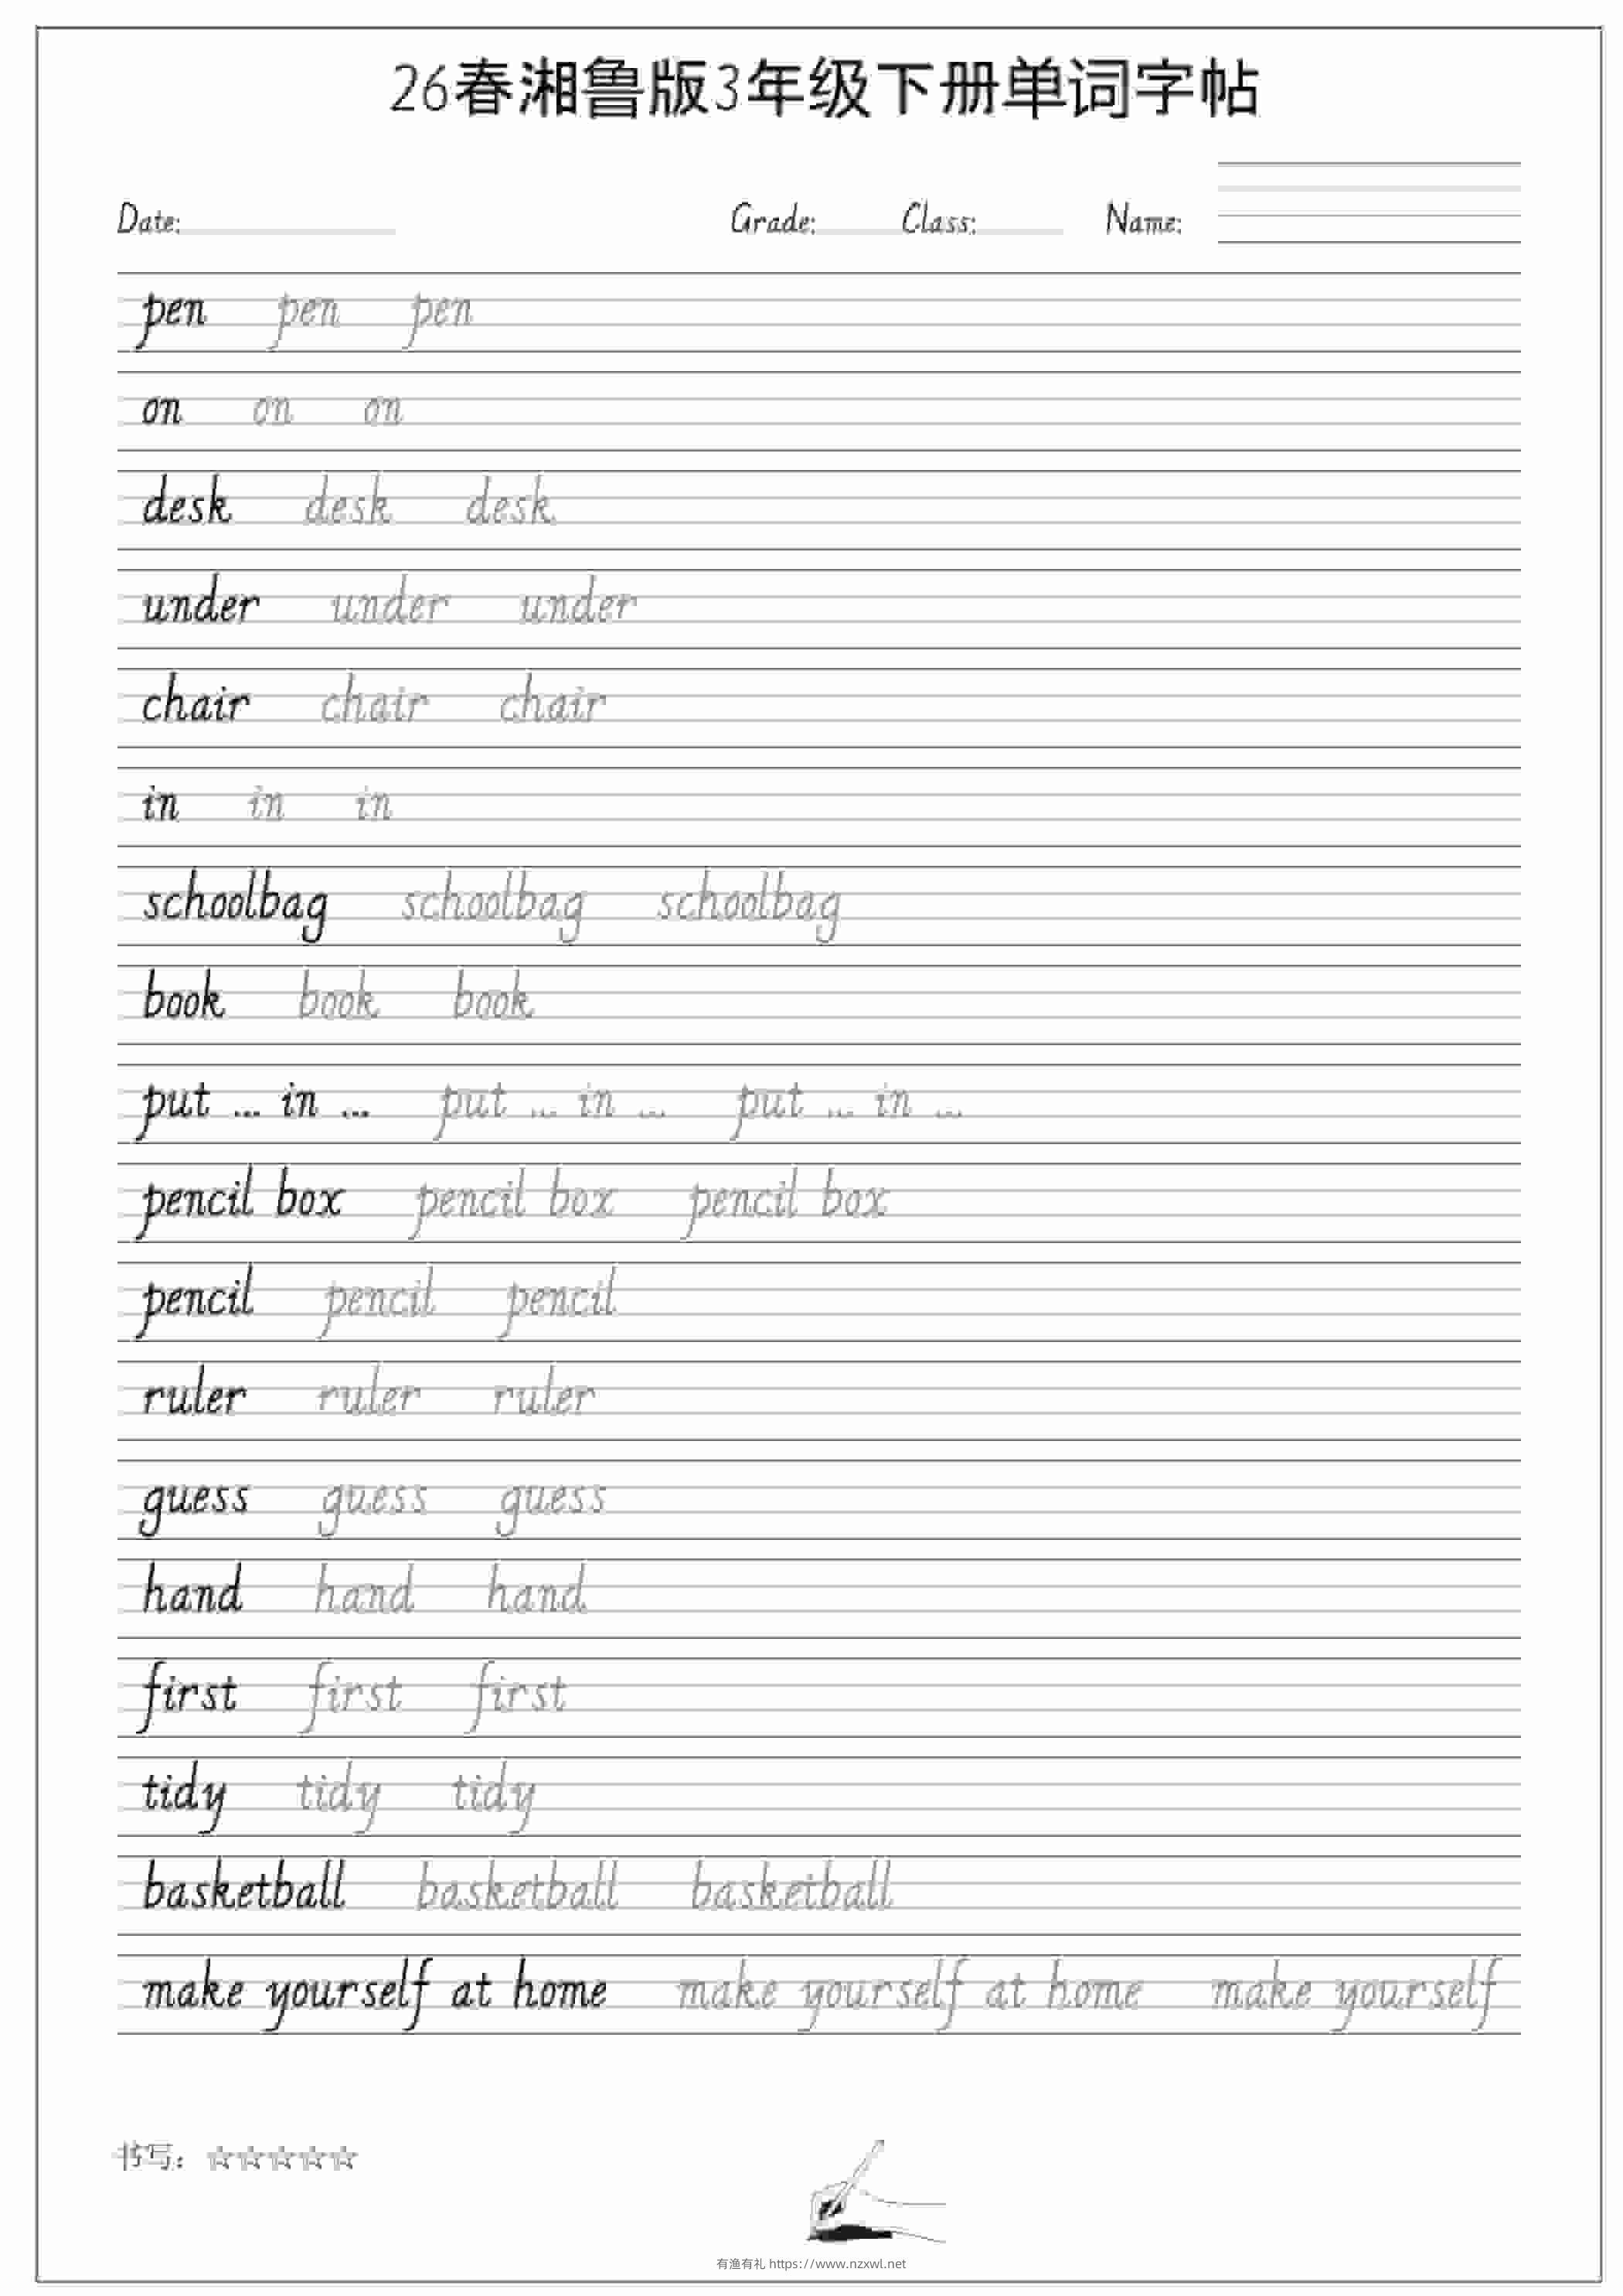 26春湘鲁版3年级下册单词字帖
Date: Grade: Class: Name:
pen pen pen
on on on
desk desk desk
under under under
chair chair chair
in in in
schoolbag schoolbag schoolbag
book book book
put ... in ... put ... in ... put ... in ...
pencil box pencil box pencil box
pencil pencil pencil
ruler ruler ruler
guess guess guess
hand hand hand
first first first
tidy tidy tidy
basketball basketball basketball
make yourself at home make yourself at home make yourself
书写：☆☆☆☆☆
有渔有礼 https://www.nzxwl.net